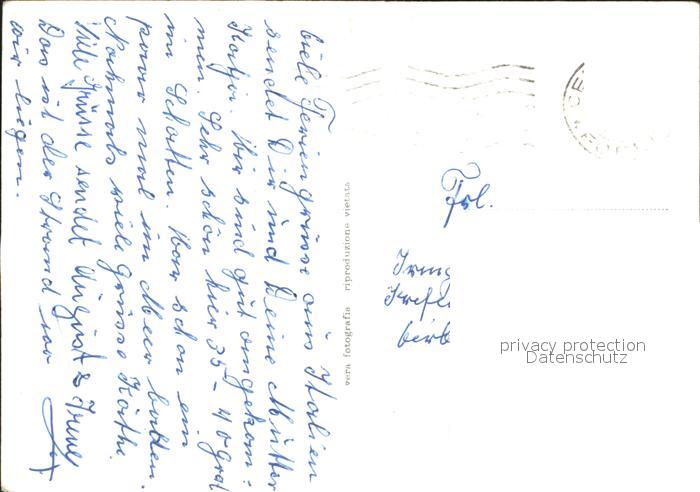 Viele Feriengrüsse aus Italien
sendet Dir und Deine Mutter
Katja. Wir sind gut angekom=
men. Sehr schön hier 35 - 40 grad
im Schatten. War schon ein
paar mal im Meer baden.
Nochmals viele Grüsse Käthe
Viele Grüsse sendet August & Irene
Das ist der Strand wo
wir liegen.
vera fotografia riproduzione vietata
Frl.
privacy protection
Datenschutz